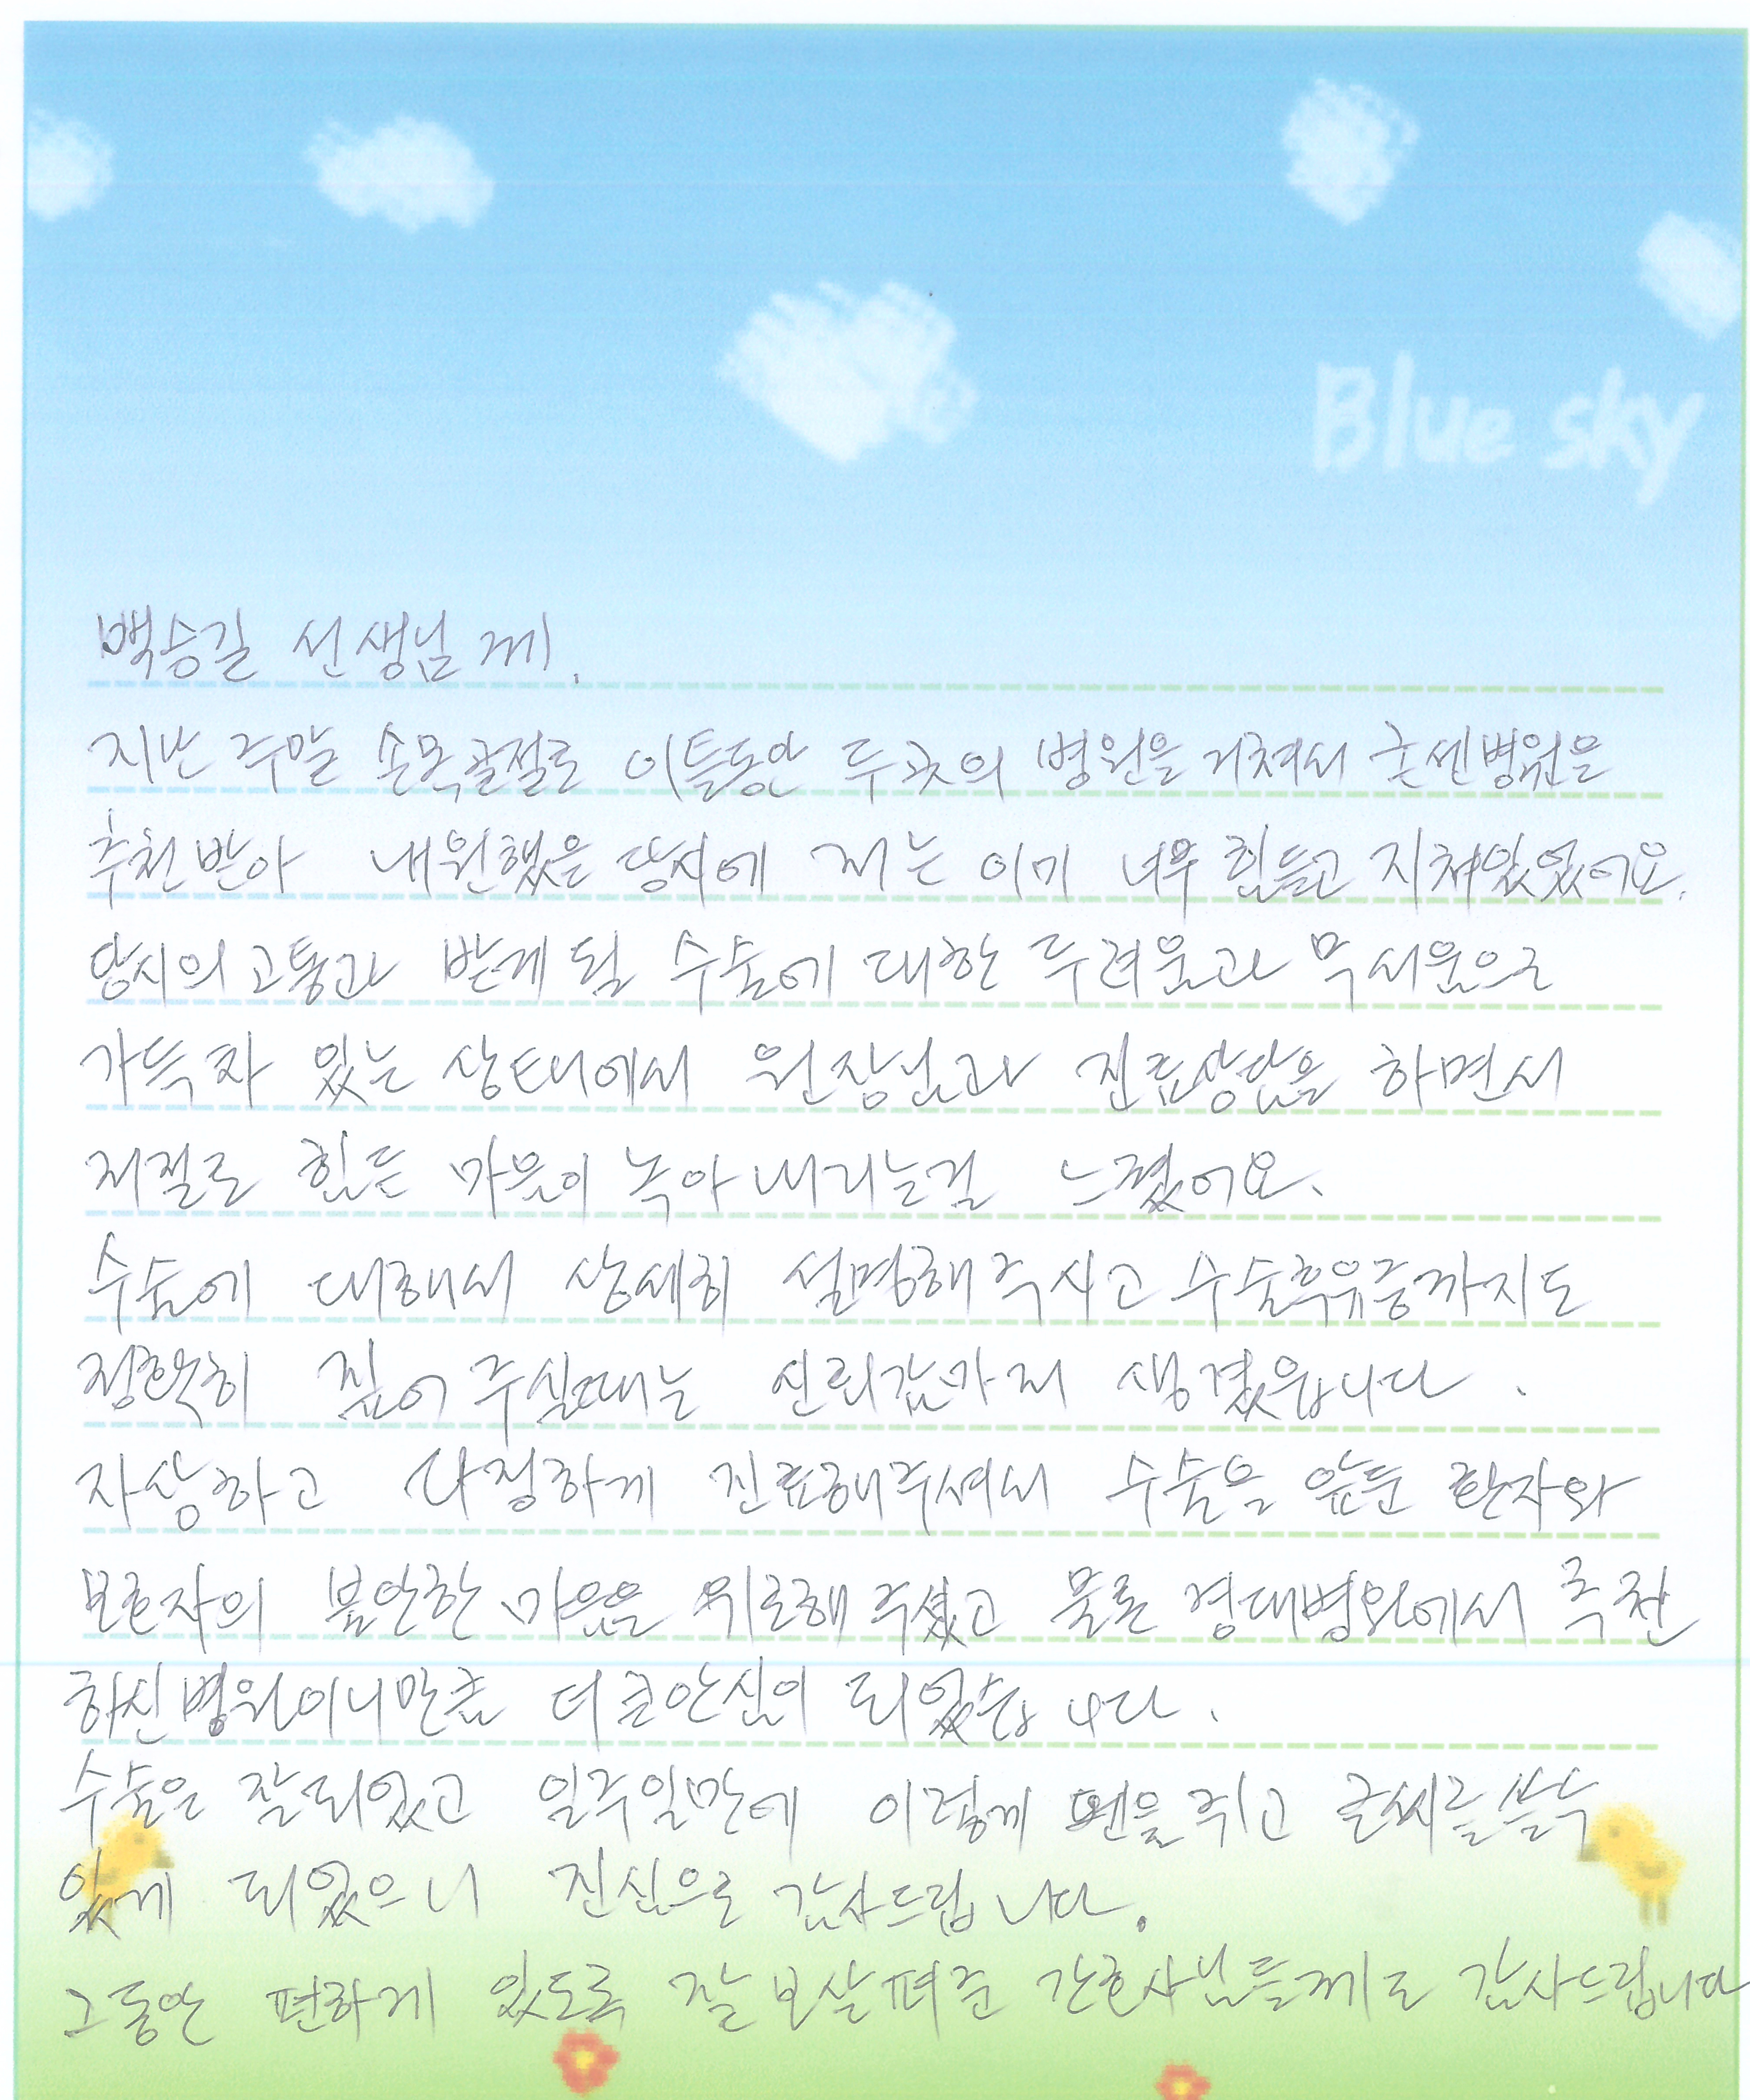 Blue sky
백승길 선생님께.
지난 주말 손목골절로 이틀동안 두곳의 병원을 거쳐서 굿센병원을
추천받아 내원했을 당시에 저는 이미 너무 힘들고 지쳐있었어요.
당시의 고통과 받게 될 수술에 대한 두려움과 무서움으로
가득차 있는 상태에서 원장님과 진료상담을 하면서
저절로 힘든 마음이 녹아내리는걸 느꼈어요.
수술에 대해서 상세히 설명해주시고 수술후유증까지도
정확히 짚어 주실때는 신뢰감까지 생겼읍니다.
자상하고 다정하게 진료해주셔서 수술을 앞둔 환자와
보호자의 불안한 마음을 위로해 주셨고 물론 경대병원에서 추천
하신병원이니만큼 더 큰안심이 되었습니다.
수술은 잘되었고 일주일만에 이렇게 펜을쥐고 글씨를쓸수
있게 되었으니 진심으로 감사드립니다.
그동안 편하게 있도록 잘 보살펴준 간호사님들께도 감사드립니다